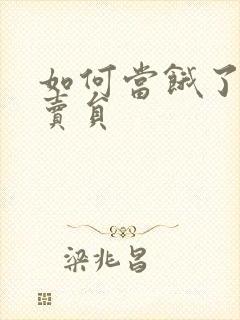 如何當餓了
賣貟
梁兆昌